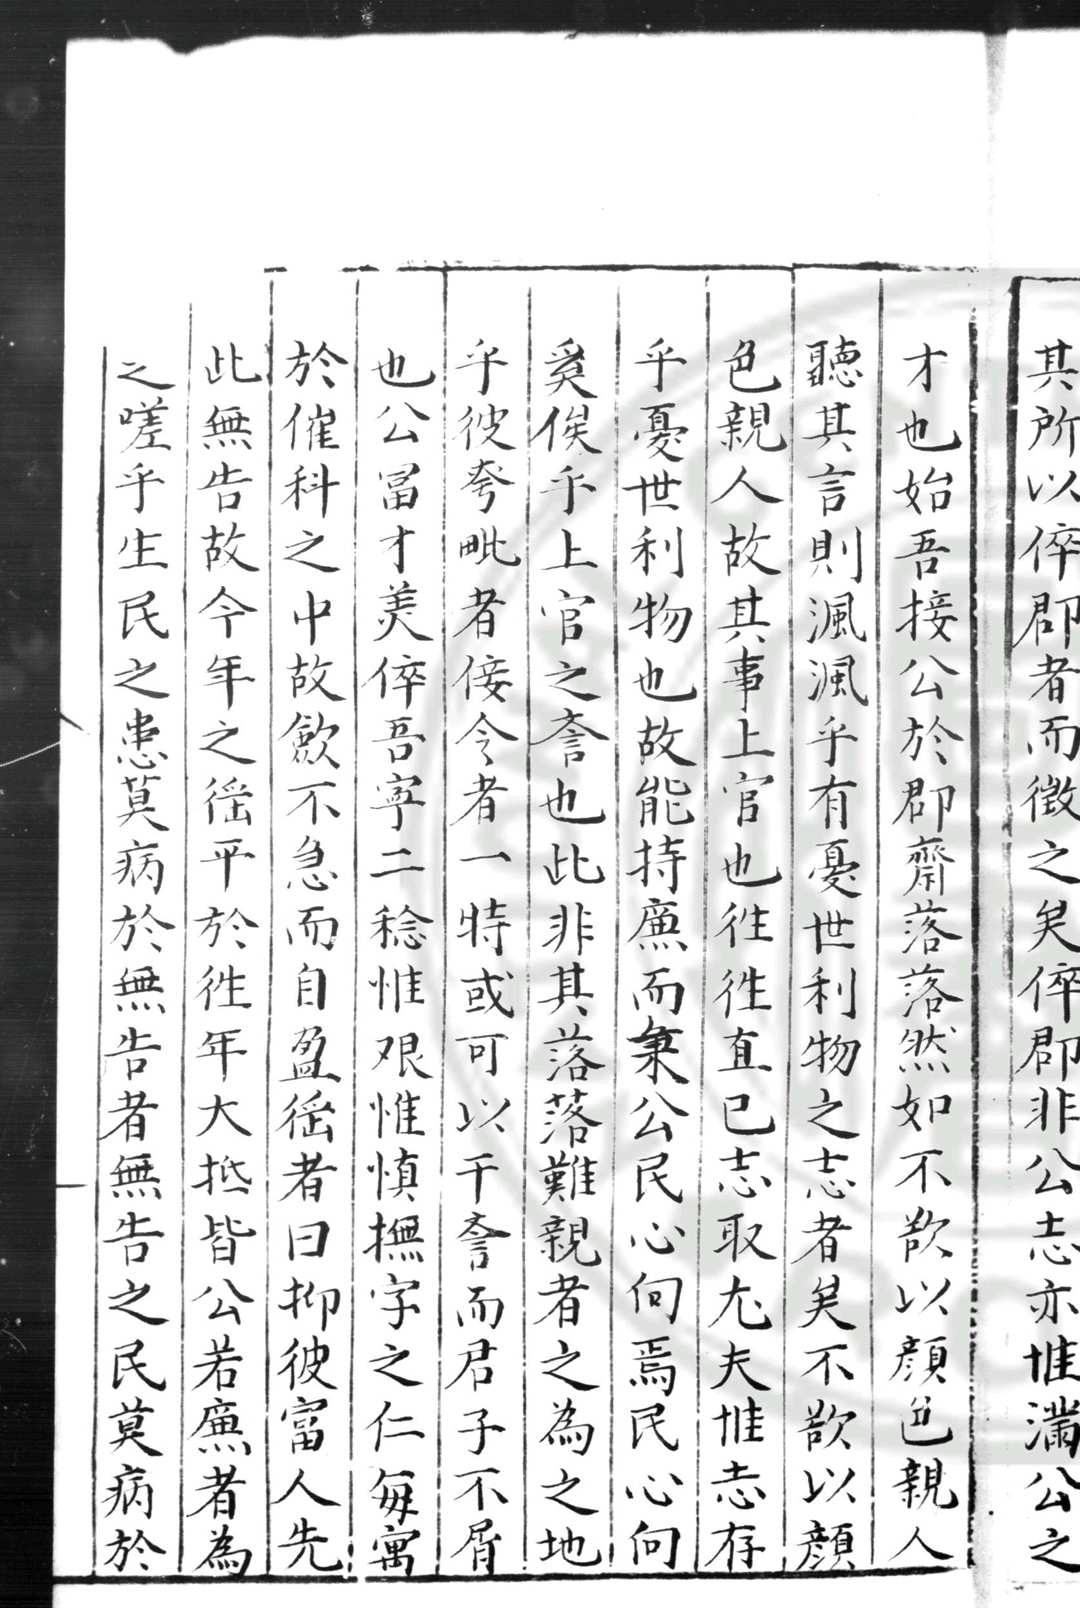 其所以倅郡者而徵之矣倅郡非公志亦惟滿公之
才也始吾接公於郡齋落落然如不欲以顔色親人
聽其言則渢渢乎有憂世利物之志者矣不欲以顔
色親人故其事上官也徃徃直已志取尤夫惟志存
乎憂世利物也故能持廉而秉公民心向焉民心向
奚俟乎上官之譽也此非其落落難親者之為之地
乎彼夸毗者倿令者一特或可以干譽而君子不屑
也公冨才美倅吾寧二稔惟艰惟慎撫字之仁每寓
於催科之中故歛不急而自盈徭者曰抑彼富人先
此無告故今年之徭平於徃年大抵皆公若廉者為
之嗟乎生民之患莫病於無告者無告之民莫病於